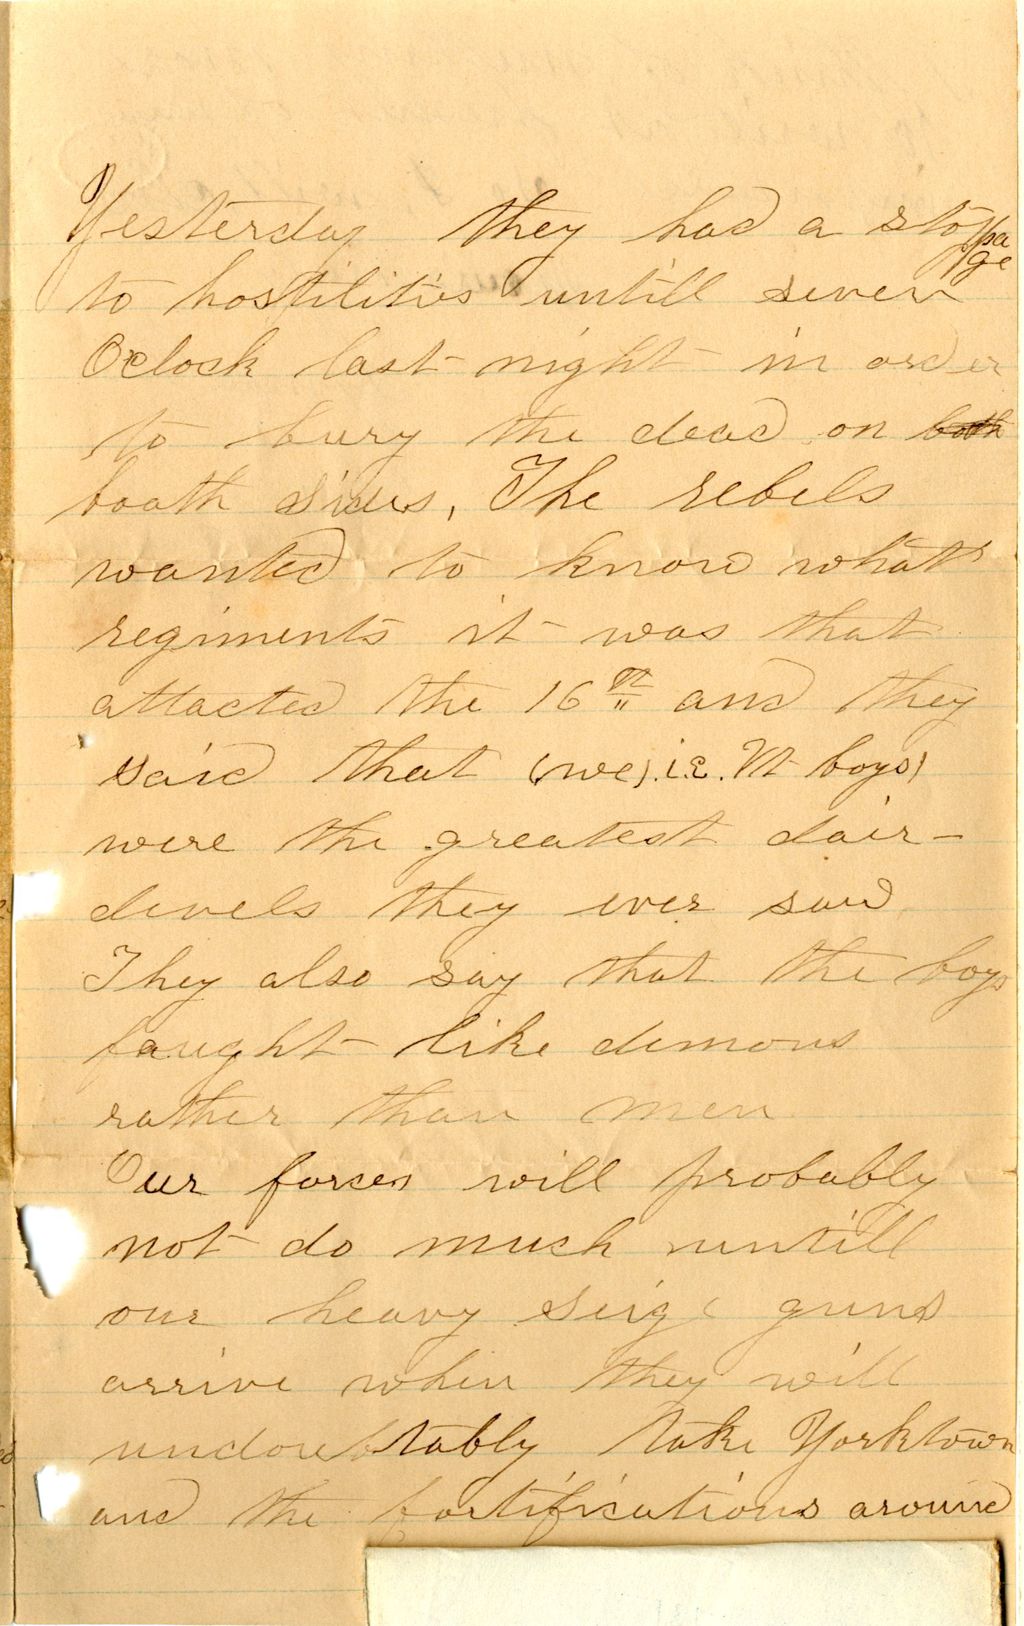 Yesterday they had a stoppage
to hostilities untill seven
Oclock last night in order
to bury the dead on both
booth sides, The rebels
wanted to know what
regiments it was that
attacted the 16th and they
said that (we) i.e. Vt boys)
were the greatest dair-
devels they ever saw
They also say that the boys
faught like demons
rather than men
Our forces will probably
not do much untill
our heavy seige guns
arrive when they will
undoubtably take Yorktown
and the fortifications around